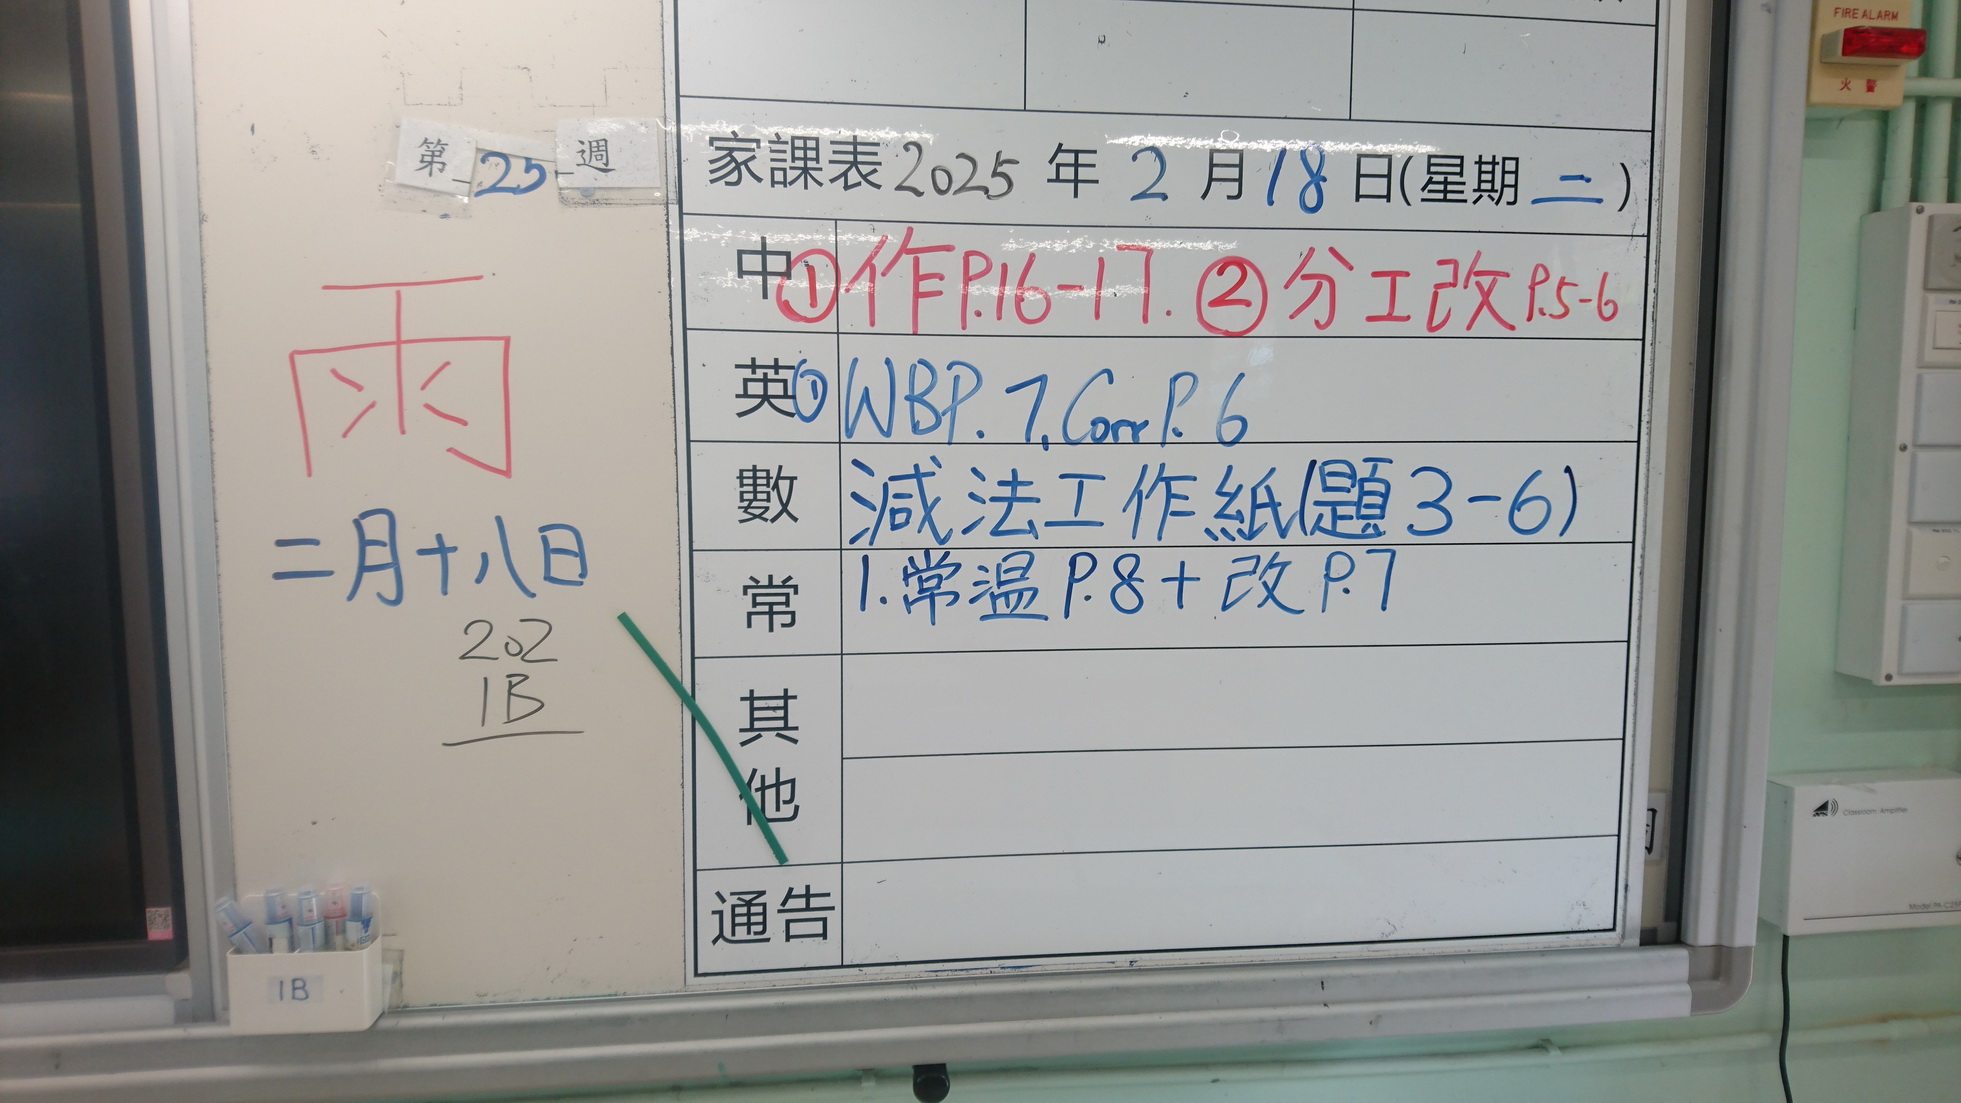 FIRE ALARM
火警
第25週
家課表2025年2月18日(星期二)
中①作P.16-17. ②分工改P.5-6
英①WBP.7, Corr P.6
數 減法工作紙(題3-6)
常 1.常温P.8+改P.7
其他
通告
雨
二月十八日
202
1B
1B
Classroom Amplifier